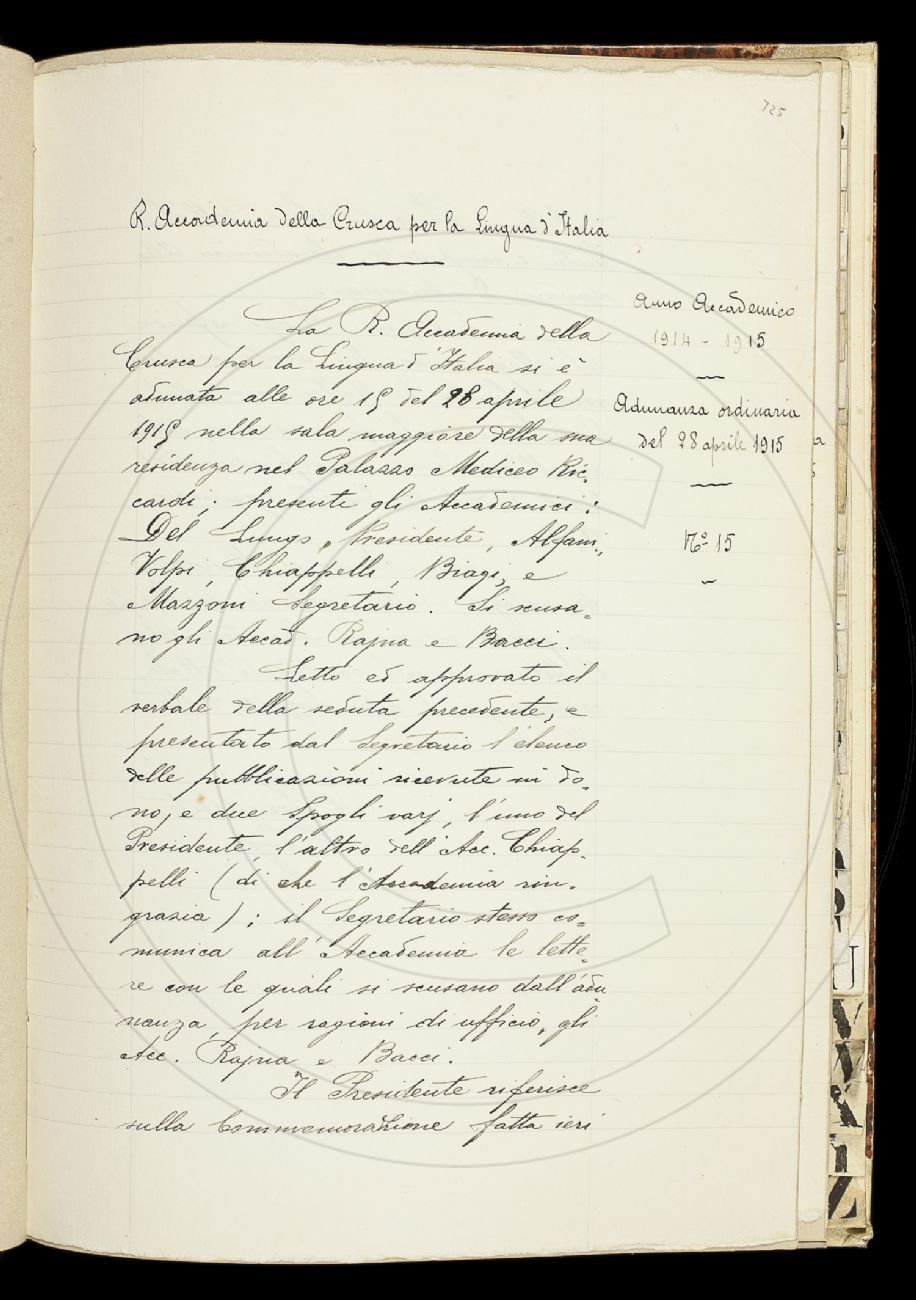 725
R. Accademia della Crusca per la Lingua d'Italia
Anno Accademico
1914 - 1915
Adunanza ordinaria
del 28 aprile 1915
No 15
La R. Accademia della
Crusca per la Lingua d'Italia si è
adunata alle ore 15 del 28 aprile
1915 nella sala maggiore della sua
residenza nel Palazzo Mediceo Ric-
cardi; presenti gli Accademici:
Del Lungo, Presidente, Alfani,
Volpi, Chiappelli, Biagi, e
Mazzoni Segretario. Si scusa-
no gli Accad. Rajna e Bacci.
Letto ed approvato il
verbale della seduta precedente, e
presentato dal Segretario l'elenco
delle pubblicazioni ricevute in do-
no, e due Spogli varj, l'uno del
Presidente, l'altro dell'Acc. Chiap-
pelli (di che l'Accademia rin-
grazia); il Segretario stesso co-
munica all'Accademia le lette-
re con le quali si scusano dall'adu
nanza, per ragioni di ufficio, gli
Acc. Rajna e Bacci.
Il Presidente riferisce
sulla Commemorazione fatta ieri